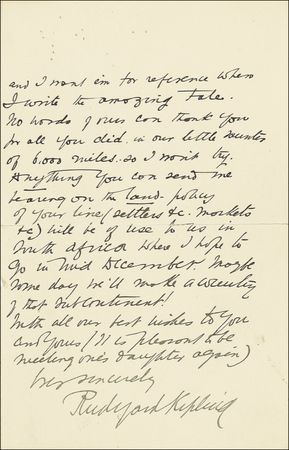 and I want em for reference when
I write the amazing tale.
No words of ours can thank you
for all you did in our little saunter
of 6.000 miles. so I won't try.
Anything you can send me
bearing on the land-policy
of your line (settlers &c. markets
&c) will be of use to us in
South Africa where I hope to
go in mid December. Maybe
some day we'll make a country
of that subcontinent!
With all our best wishes to you
and yours (it is pleasant to be
meeting one's daughter again)
Yrs sincerely
Rudyard Kipling